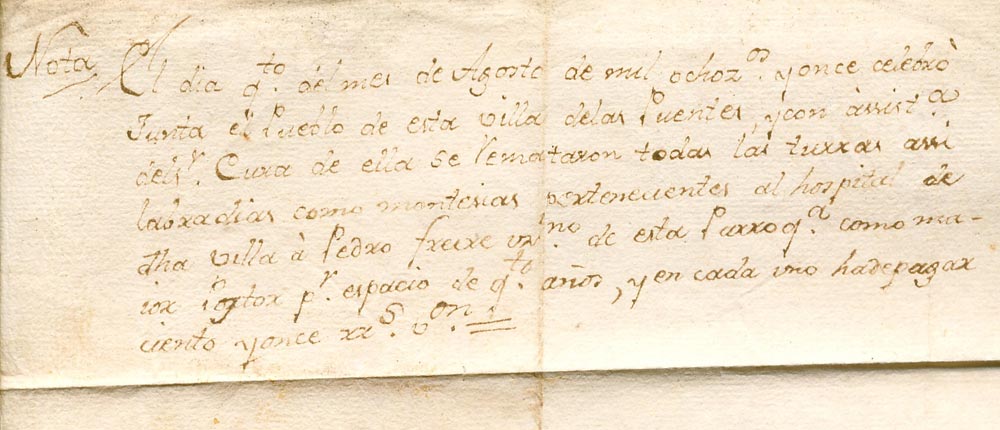 Nota El dia q.to del mes de Agosto de mil ochoz.os y once celebrò
Junta el Pueblo de esta villa de las Puentes, y con àssist.a
del s.r Cura de ella se remataron todas las turras assi
labradias como montesias pertenecientes al hospital de
dha villa à Pedro freire vez.no de esta Parroq.a como ma-
ior Postor p.r espacio de q.to años, y en cada uno ha de pagar
ciento y once rr.s v.on